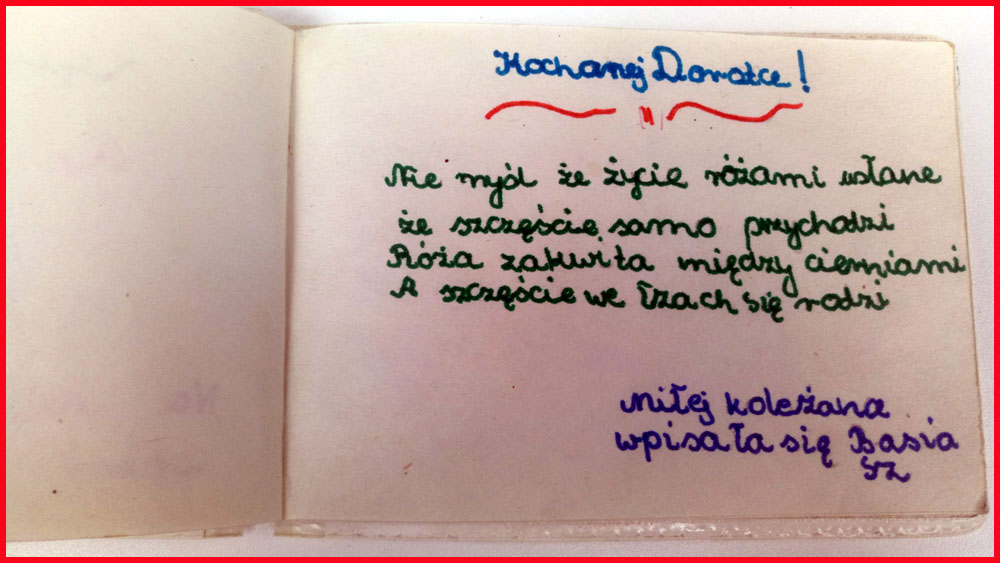 Kochanej Dorotce!
Nie myśl że życie różami usłane
że szczęście samo przychodzi
Róża zakwita między cierniami
A szczęście we łzach się rodzi
Miłej koleżana
wpisała się Basia